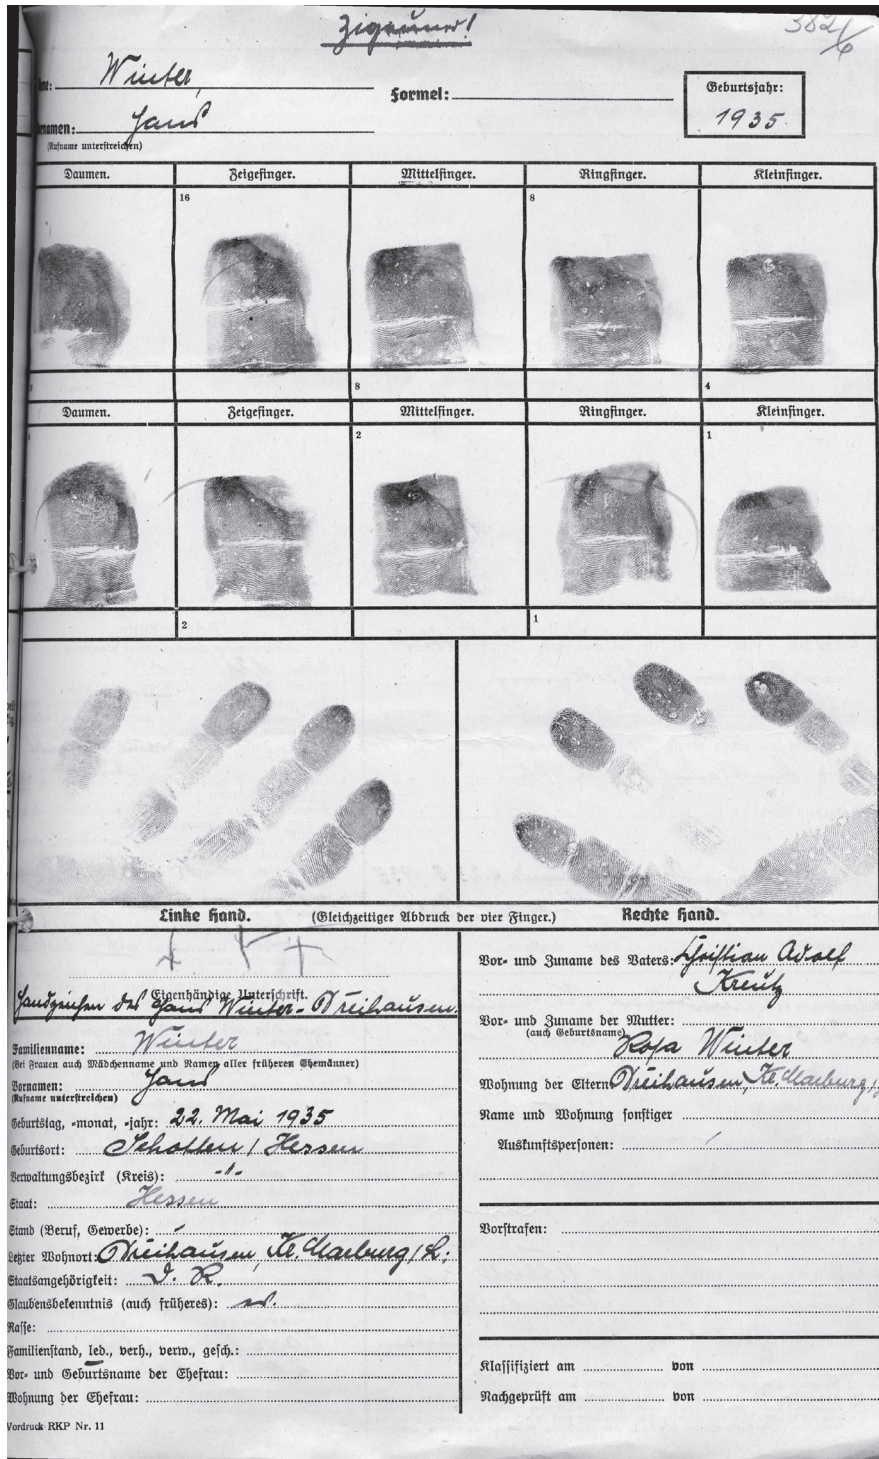 Zigeuner!
382/6
me: Winter,
Formel:
Geburtsjahr:
1935.
rnamen: Hans
(Rufname unterstreichen)
Daumen. Zeigefinger. Mittelfinger. Ringfinger. Kleinfinger.
16 8
8 4
Daumen. Zeigefinger. Mittelfinger. Ringfinger. Kleinfinger.
2 1
2 1
Linke Hand. (Gleichzeitiger Abdruck der vier Finger.) Rechte Hand.
Eigenhändige Unterschrift.
Handzeichen des Hans Winter - Dreihausen.
Familienname: Winter
(Bei Frauen auch Mädchenname und Namen aller früheren Ehemänner)
Vornamen: Hans
(Rufname unterstreichen)
Geburtstag, -monat, -jahr: 22. Mai 1935
Geburtsort: Schotten / Hessen
Verwaltungsbezirk (Kreis): -"-
Staat: Hessen
Stand (Beruf, Gewerbe): -
Letzter Wohnort: Dreihausen, Kr. Marburg / L.
Staatsangehörigkeit: D. R.
Glaubensbekenntnis (auch früheres): ev.
Rasse:
Familienstand, led., verh., verw., gesch.:
Vor- und Geburtsname der Ehefrau:
Wohnung der Ehefrau:
Vordruck RKP Nr. 11
Vor- und Zuname des Vaters: Christian Adolf
Kreutz
Vor- und Zuname der Mutter:
(auch Geburtsname)
Rosa Winter
Wohnung der Eltern: Dreihausen, Kr. Marburg/
Name und Wohnung sonstiger
Auskunftspersonen: /
Vorstrafen:
Klassifiziert am von
Nachgeprüft am von